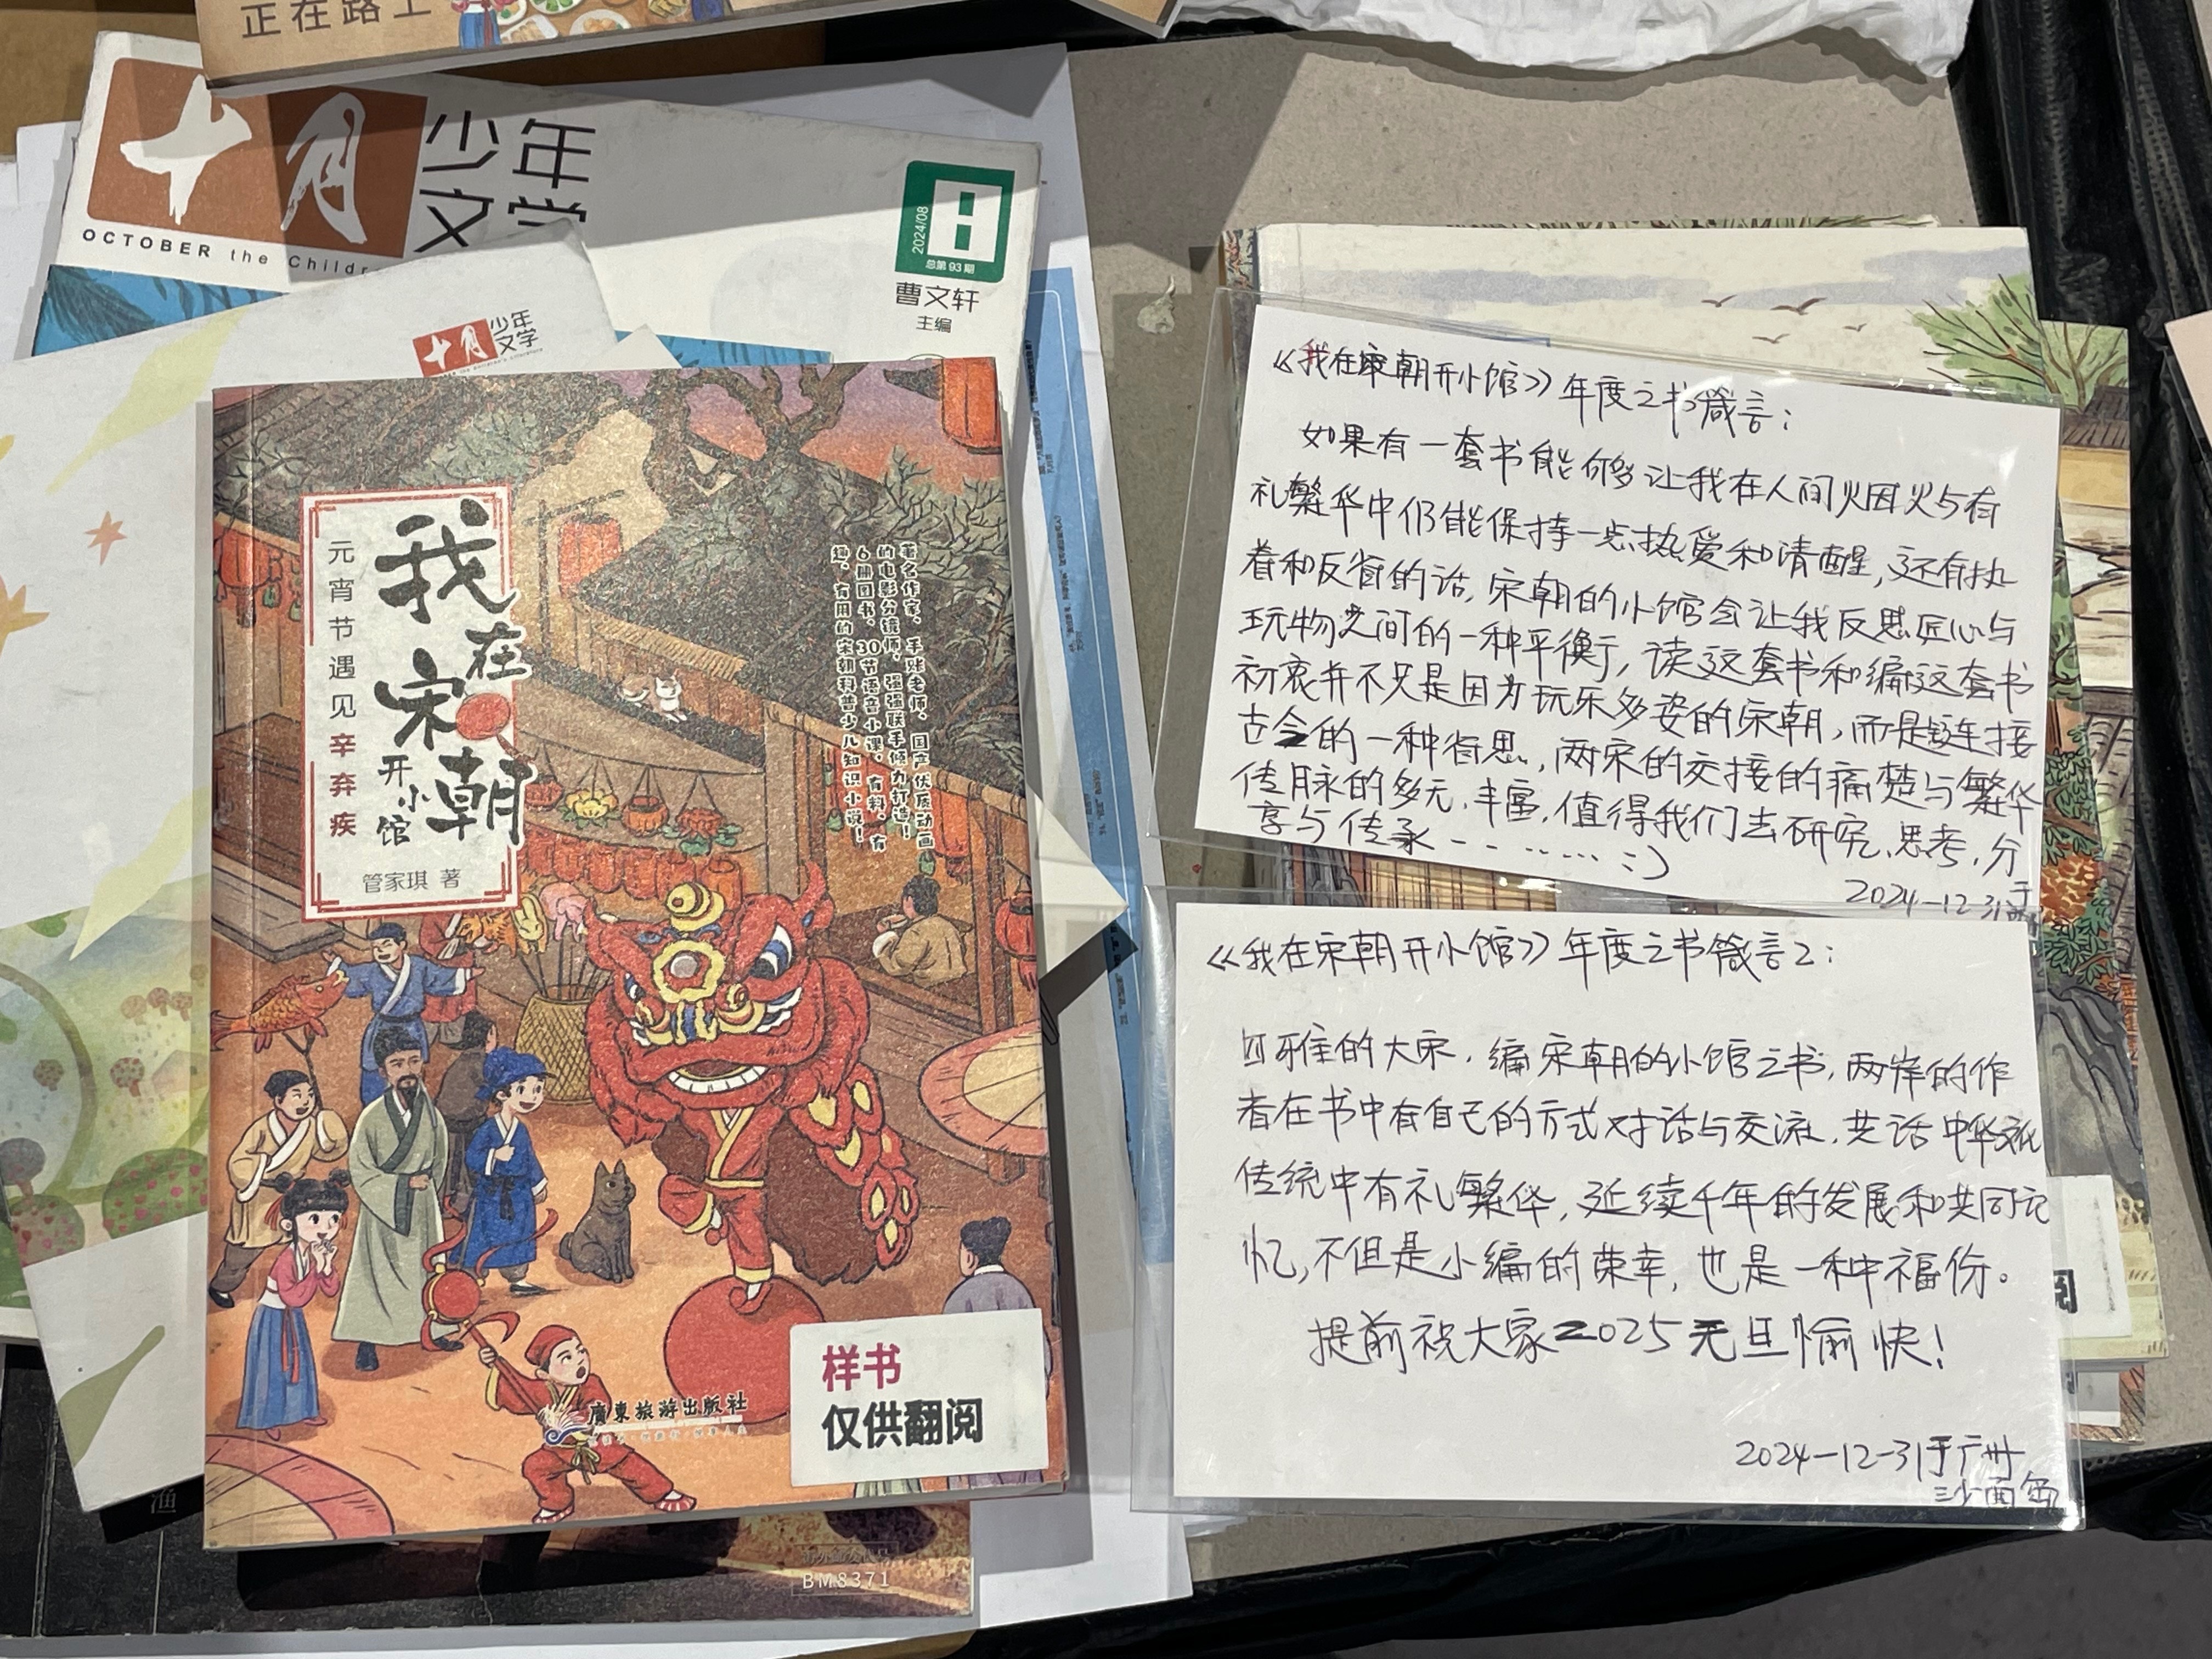 正在路上
十月
少年
文学
OCTOBER the Childr
2024/08
总第93期
曹文轩
主编
十月
少年
文学
我在宋朝开小馆
元宵节遇见辛弃疾
管家琪 著
著名作家、手账老师、国产优质动画
的电影分镜师,强强联手倾力打造!
6册图书、30节语音小课,有料、有
趣、有用的宋朝科普少儿知识小说!
廣東旅游出版社
样书
仅供翻阅
BM8371
《我在宋朝开小馆》年度之书箴言:
如果有一套书能够让我在人间烟火与有
礼繁华中仍能保持一点热爱和清醒,还有执
着和反省的话,宋朝的小馆会让我反思匠心与
玩物之间的一种平衡,读这套书和编这套书
初衷并不只是因为玩乐多姿的宋朝,而是链连接
古今的一种省思,两宋的交接的痛楚与繁华
传脉的多元,丰富,值得我们去研究,思考,分
享与传承……:)
2024-12-31于
《我在宋朝开小馆》年度之书箴言2:
风雅的大宋,编宋朝的小馆之书,两岸的作
者在书中有自己的方式对话与交流,共话中华文化
传统中有礼繁华,延续千年的发展和共同记
忆,不但是小编的荣幸,也是一种福份。
提前祝大家2025元旦愉快!
2024-12-31于广州
渔
阅